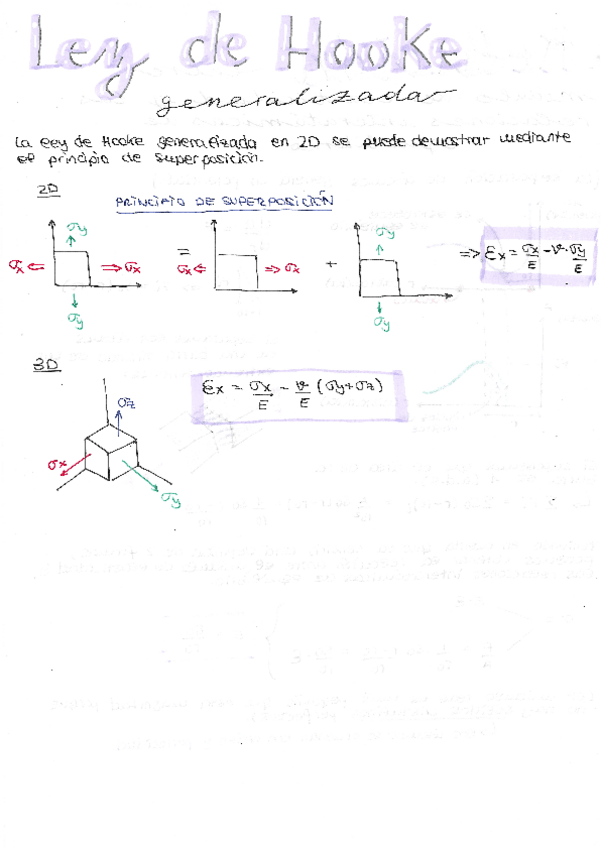 Ley de Hooke
generalizada
La ley de Hooke generalizada en 2D se puede demostrar mediante
el principio de superposición.
2D
PRINCIPIO DE SUPERPOSICIÓN
σy σy
σx ⇐ ⇒ σx = σx ⇐ ⇒ σx + ⇒ εx = σx/E - ν·σy/E
σy σy
3D
εx = σx/E - ν/E (σy + σz)
σz
σx
σy